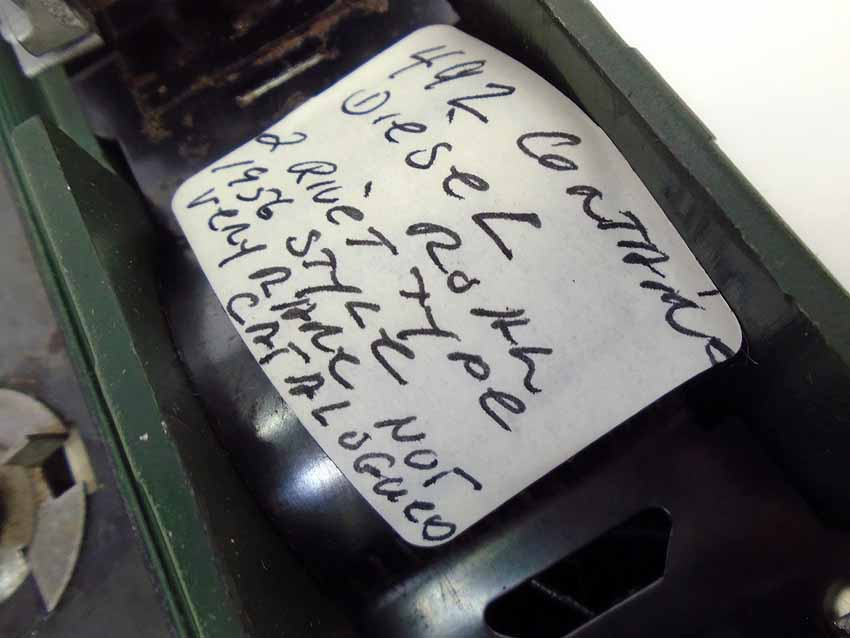 492 CONTAINS
DIESEL ROAR
2 RIVET TYPE
1956 STYLE
VERY RARE NOT
CATALOGUED